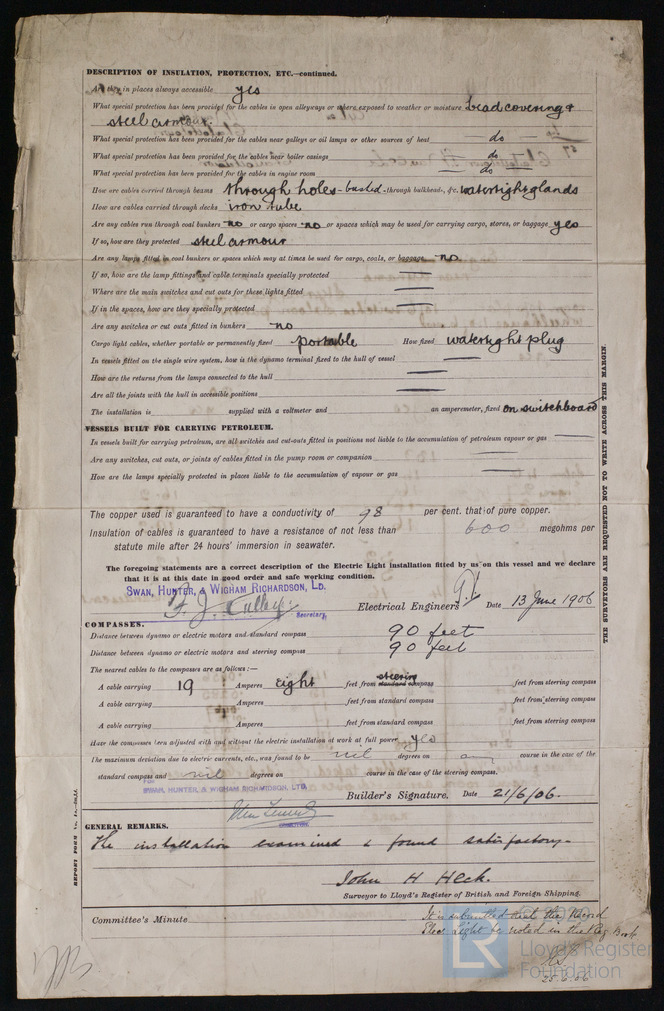 DESCRIPTION OF INSULATION, PROTECTION, ETC.—continued.
Are they in places always accessible yes
What special protection has been provided for the cables in open alleyways or where exposed to weather or moisture Lead covering &
steel armour.
What special protection has been provided for the cables near galleys or oil lamps or other sources of heat do
What special protection has been provided for the cables near boiler casings do
What special protection has been provided for the cables in engine room do
How are cables carried through beams through holes - bushed - through bulkheads, &c. watertight glands
How are cables carried through decks iron tube
Are any cables run through coal bunkers no or cargo spaces no or spaces which may be used for carrying cargo, stores, or baggage yes
If so, how are they protected steel armour
Are any lamps fitted in coal bunkers or spaces which may at times be used for cargo, coals, or baggage no
If so, how are the lamp fittings and cable terminals specially protected
Where are the main switches and cut outs for these lights fitted
If in the spaces, how are they specially protected
Are any switches or cut outs fitted in bunkers no
Cargo light cables, whether portable or permanently fixed portable How fixed watertight plug
In vessels fitted on the single wire system, how is the dynamo terminal fixed to the hull of vessel
How are the returns from the lamps connected to the hull
Are all the joints with the hull in accessible positions
The installation is supplied with a voltmeter and an amperemeter, fixed on switchboard
VESSELS BUILT FOR CARRYING PETROLEUM.
In vessels built for carrying petroleum, are all switches and cut-outs fitted in positions not liable to the accumulation of petroleum vapour or gas
Are any switches, cut outs, or joints of cables fitted in the pump room or companion
How are the lamps specially protected in places liable to the accumulation of vapour or gas
THE SURVEYORS ARE REQUESTED NOT TO WRITE ACROSS THIS MARGIN.
The copper used is guaranteed to have a conductivity of 98 per cent. that of pure copper.
Insulation of cables is guaranteed to have a resistance of not less than 600 megohms per
statute mile after 24 hours' immersion in seawater.
The foregoing statements are a correct description of the Electric Light installation fitted by us on this vessel and we declare
that it is at this date in good order and safe working condition.
SWAN, HUNTER, & WIGHAM RICHARDSON, LD.
Secretary.
Electrical Engineers Date 13 June 1906
COMPASSES.
Distance between dynamo or electric motors and standard compass 90 feet
Distance between dynamo or electric motors and steering compass 90 feet
The nearest cables to the compasses are as follows:—
steering
A cable carrying 19 Amperes eight feet from standard compass feet from steering compass
A cable carrying Amperes feet from standard compass feet from steering compass
A cable carrying Amperes feet from standard compass feet from steering compass
Have the compasses been adjusted with and without the electric installation at work at full power yes
The maximum deviation due to electric currents, etc., was found to be nil degrees on any course in the case of the
standard compass and nil degrees on course in the case of the steering compass.
FOR
SWAN, HUNTER, & WIGHAM RICHARDSON, LTD.
Builder's Signature. Date 21/6/06.
GENERAL REMARKS.
The installation examined & found satisfactory.
John H Heck.
Surveyor to Lloyd's Register of British and Foreign Shipping.
Committee's Minute
It is submitted that the Record
Elec. Light be noted in the Reg Book
25.6.06
LR
Lloyd's Register
Foundation